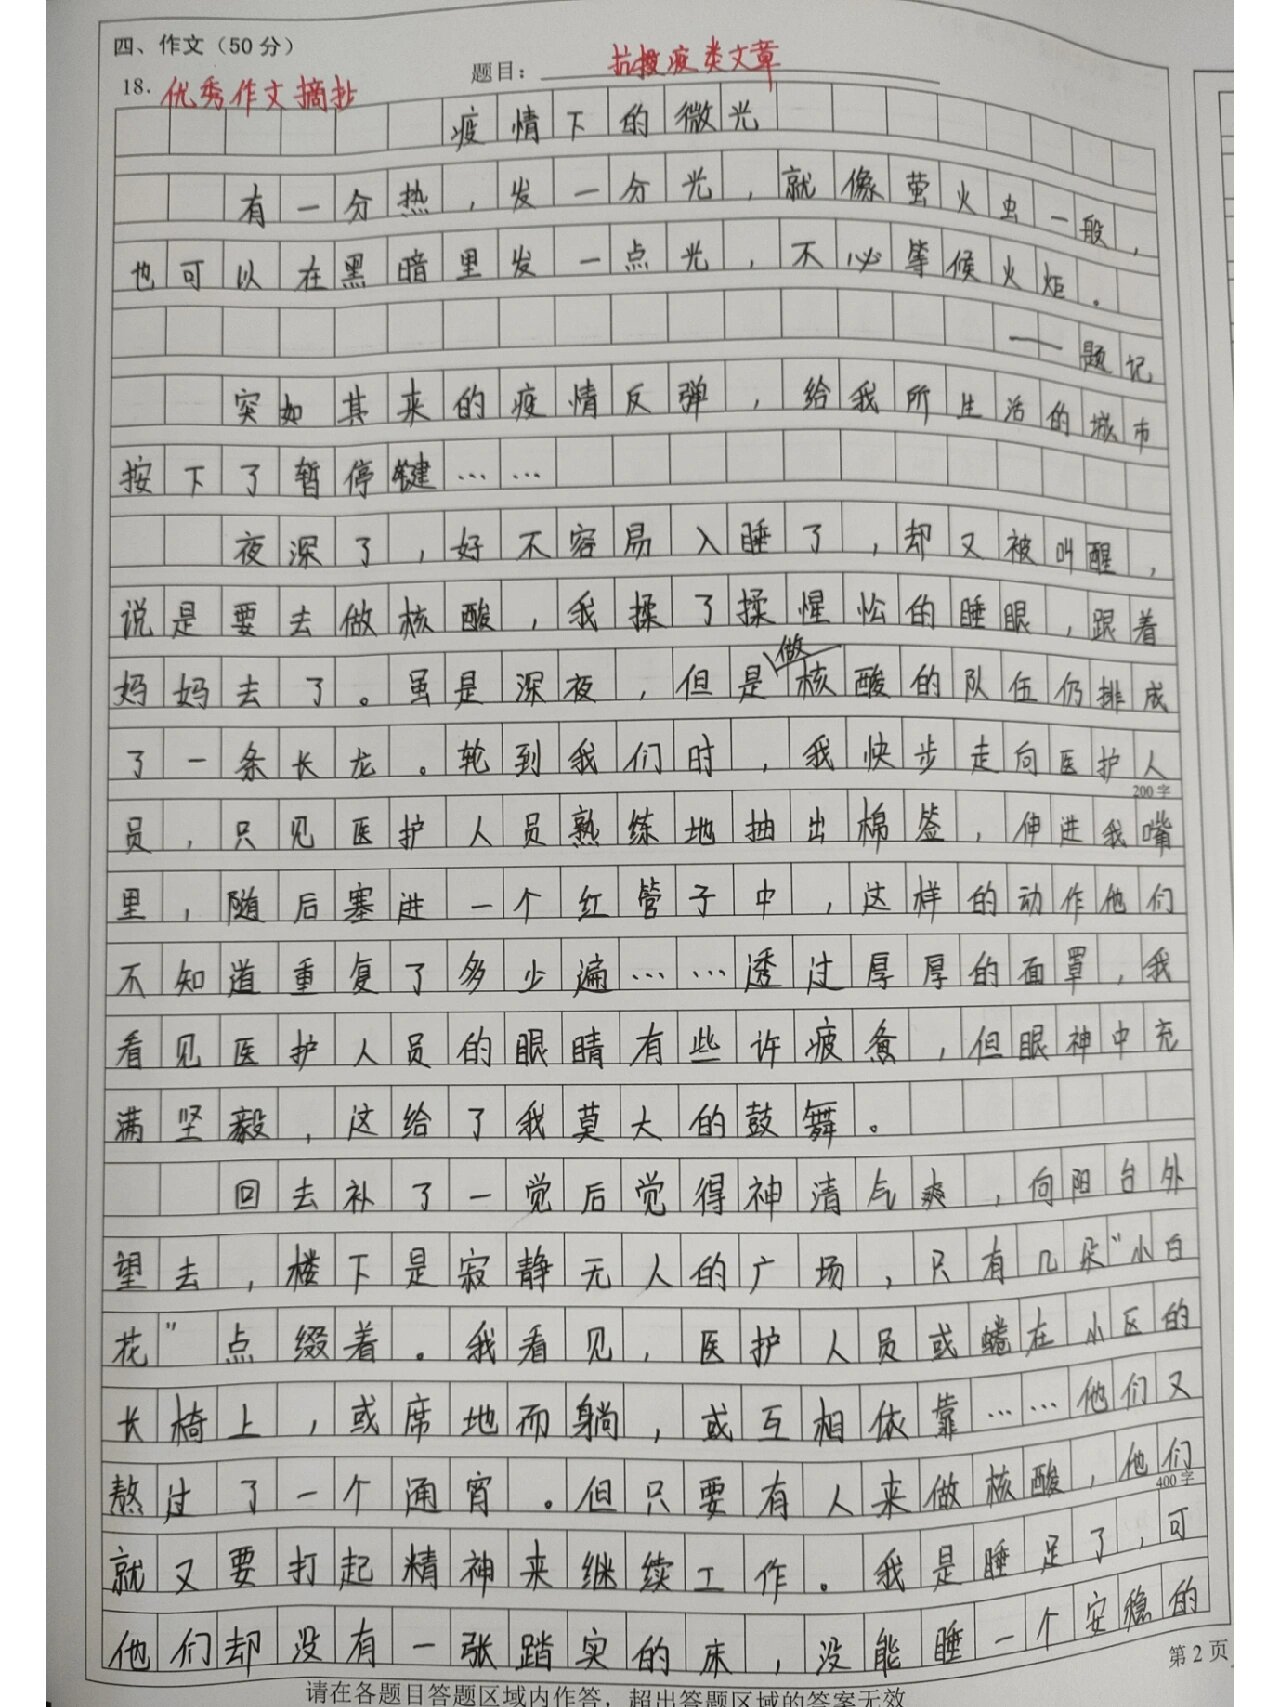 四、作文（50分）
18. 优秀作文摘抄 题目： 抗疫类文章
疫情下的微光
有一分热，发一分光，就像萤火虫一般，
也可以在黑暗里发一点光，不必等候火炬。
——题记
突如其来的疫情反弹，给我所生活的城市
按下了暂停键……
夜深了，好不容易入睡了，却又被叫醒，
说是要去做核酸，我揉了揉惺忪的睡眼，跟着
妈妈去了。虽是深夜，但是做核酸的队伍仍排成
了一条长龙。轮到我们时，我快步走向医护人
200字
员，只见医护人员熟练地抽出棉签，伸进我嘴
里，随后塞进一个红管子中，这样的动作他们
不知道重复了多少遍……透过厚厚的面罩，我
看见医护人员的眼睛有些许疲惫，但眼神中充
满坚毅，这给了我莫大的鼓舞。
回去补了一觉后觉得神清气爽，向阳台外
望去，楼下是寂静无人的广场，只有几朵“小白
花”点缀着。我看见，医护人员或蜷在小区的
长椅上，或席地而躺，或互相依靠……他们又
熬过了一个通宵。但只要有人来做核酸，他们
400字
就又要打起精神来继续工作。我是睡足了，可
他们却没有一张踏实的床，没能睡一个安稳的
第2页
请在各题目答题区域内作答，超出答题区域的答案无效